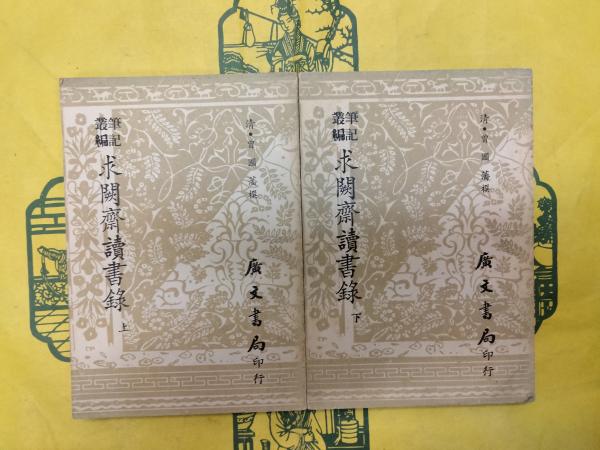 筆記叢編
求闕齋讀書錄 上
清•曾國藩撰
廣文書局印行
筆記叢編
求闕齋讀書錄 下
清•曾國藩撰
廣文書局印行